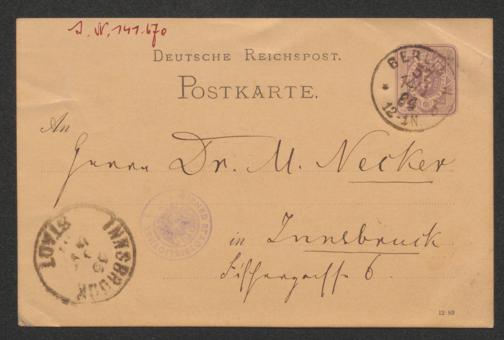 I. N. 141.670
DEUTSCHE REICHSPOST.
POSTKARTE.
BERLIN
12-1N
An
Herrn Dr. M. Necker
in Innsbruck
INNSBRUCK
STADT
12 89